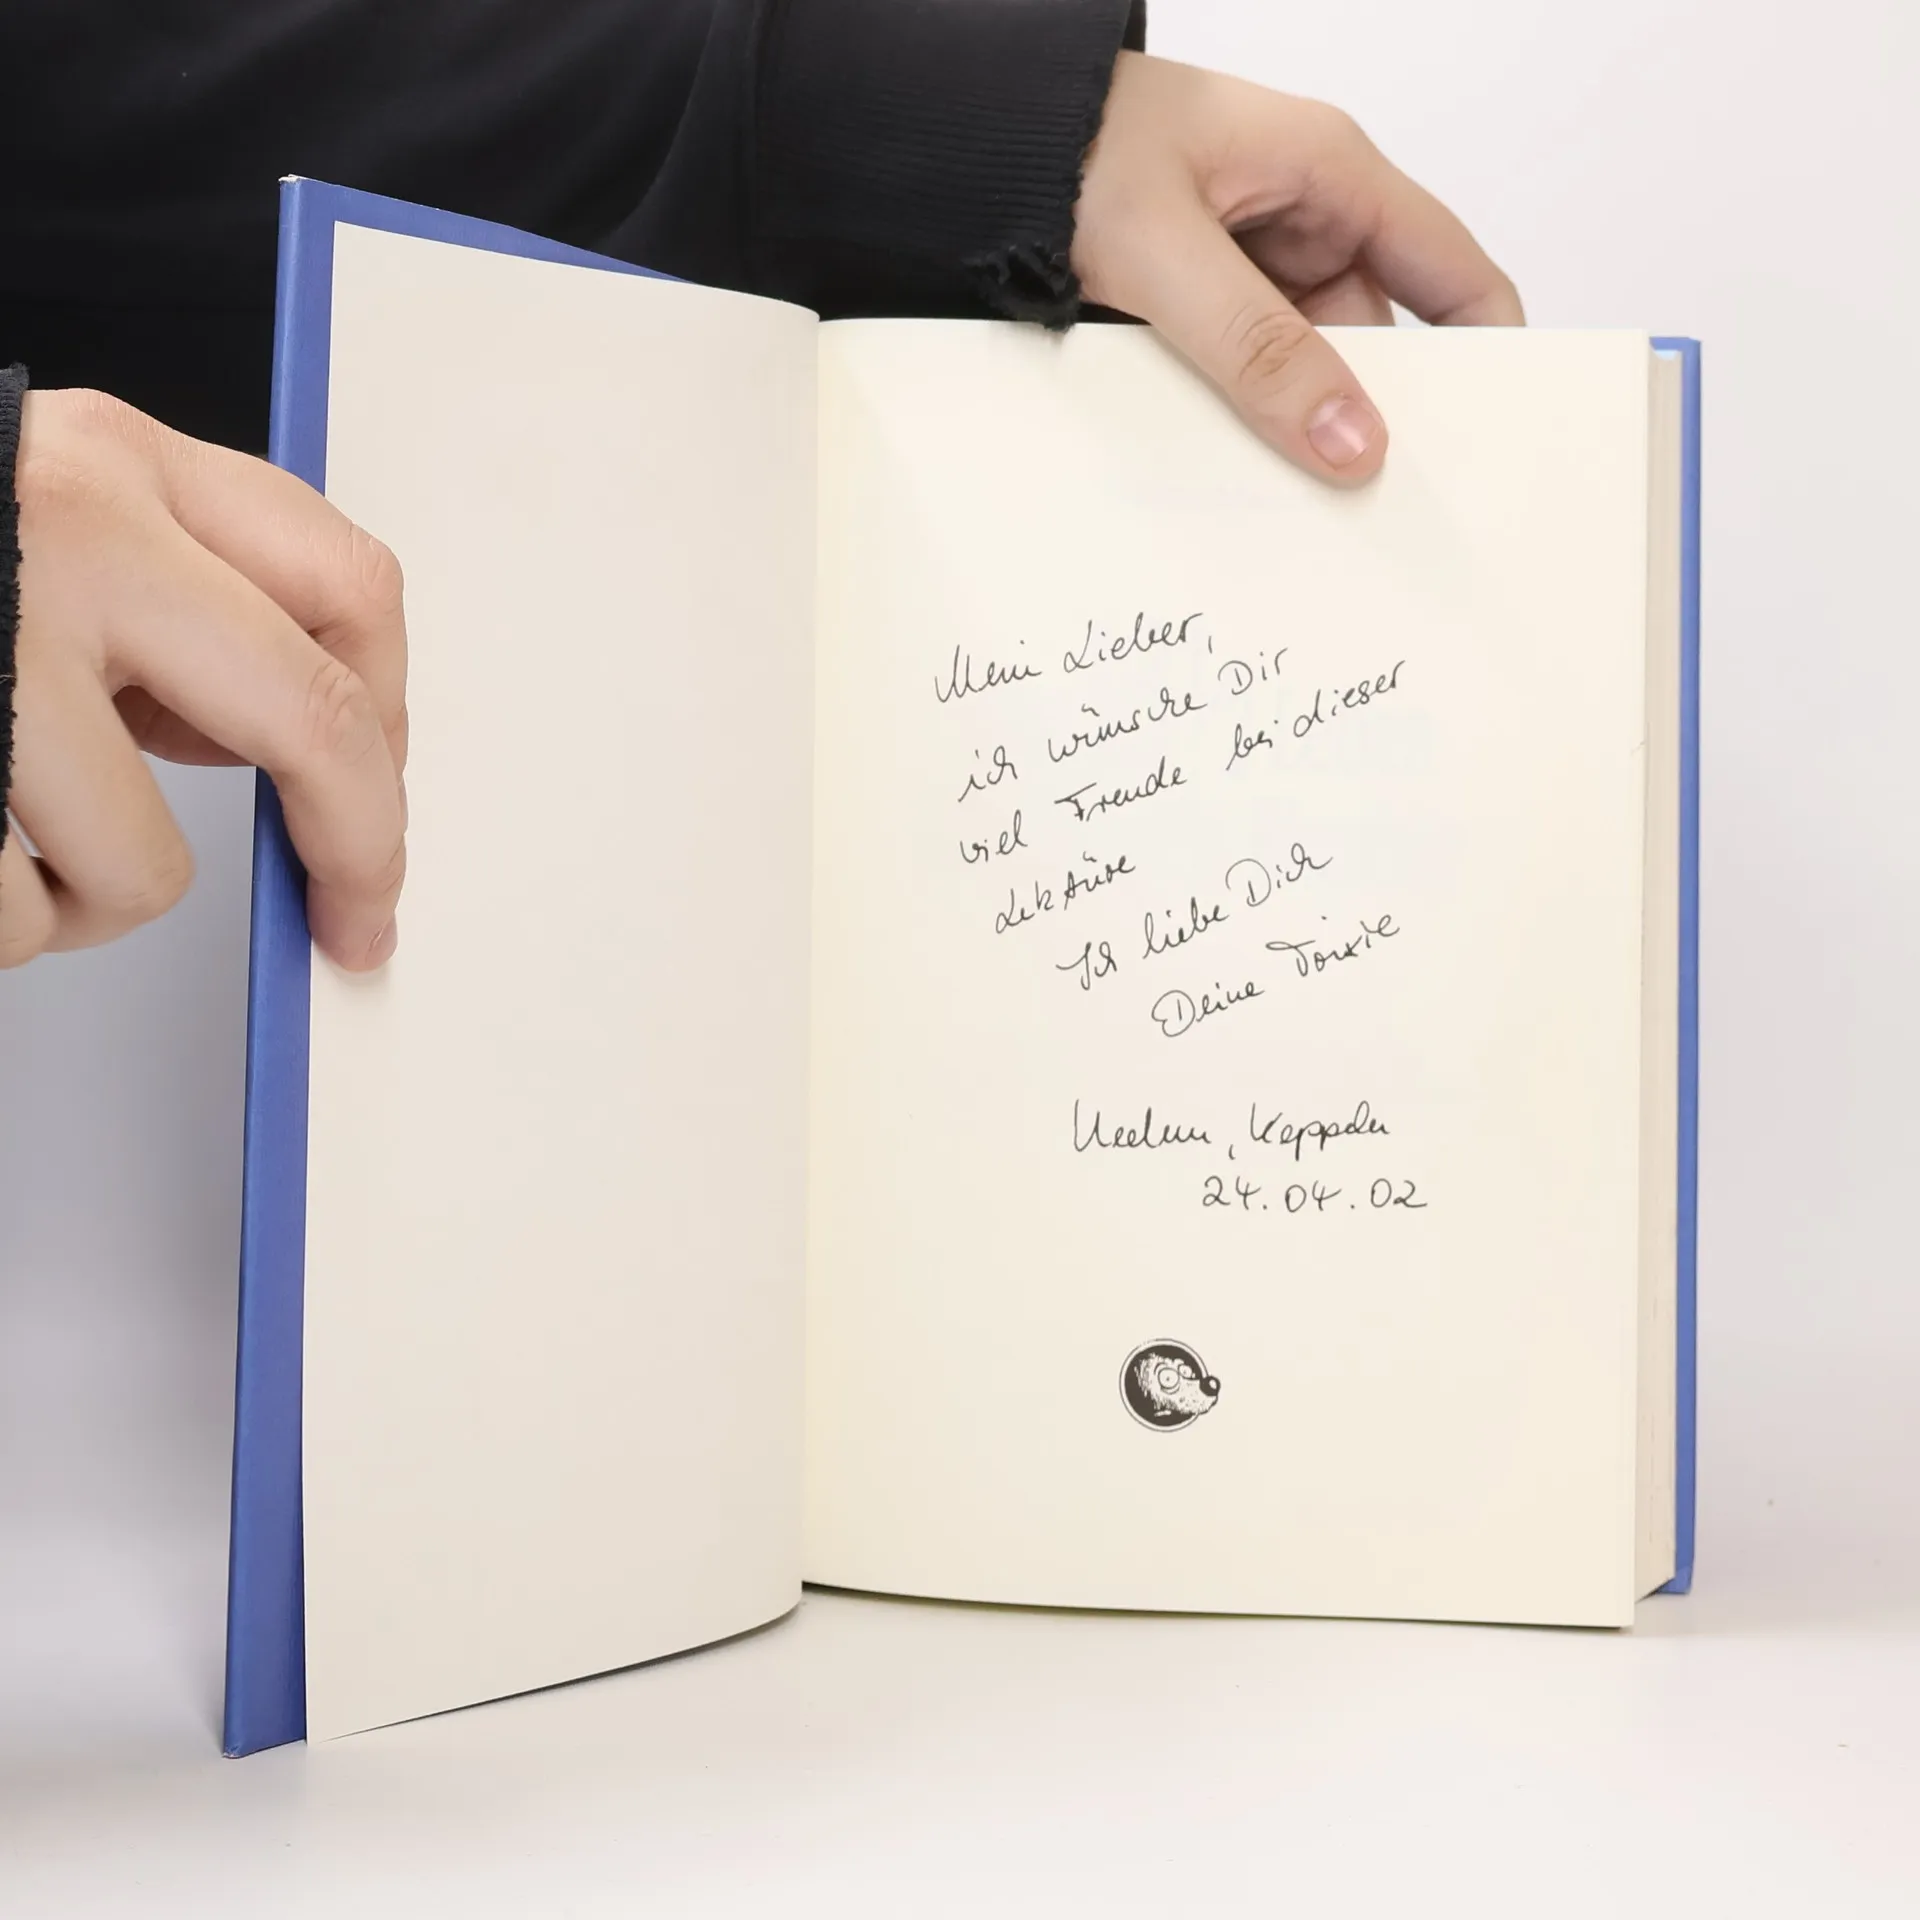 Mein Lieber,
ich wünsche Dir
viel Freude bei dieser
Lektüre
Ich liebe Dich
Deine
Keppeln
24.04.02